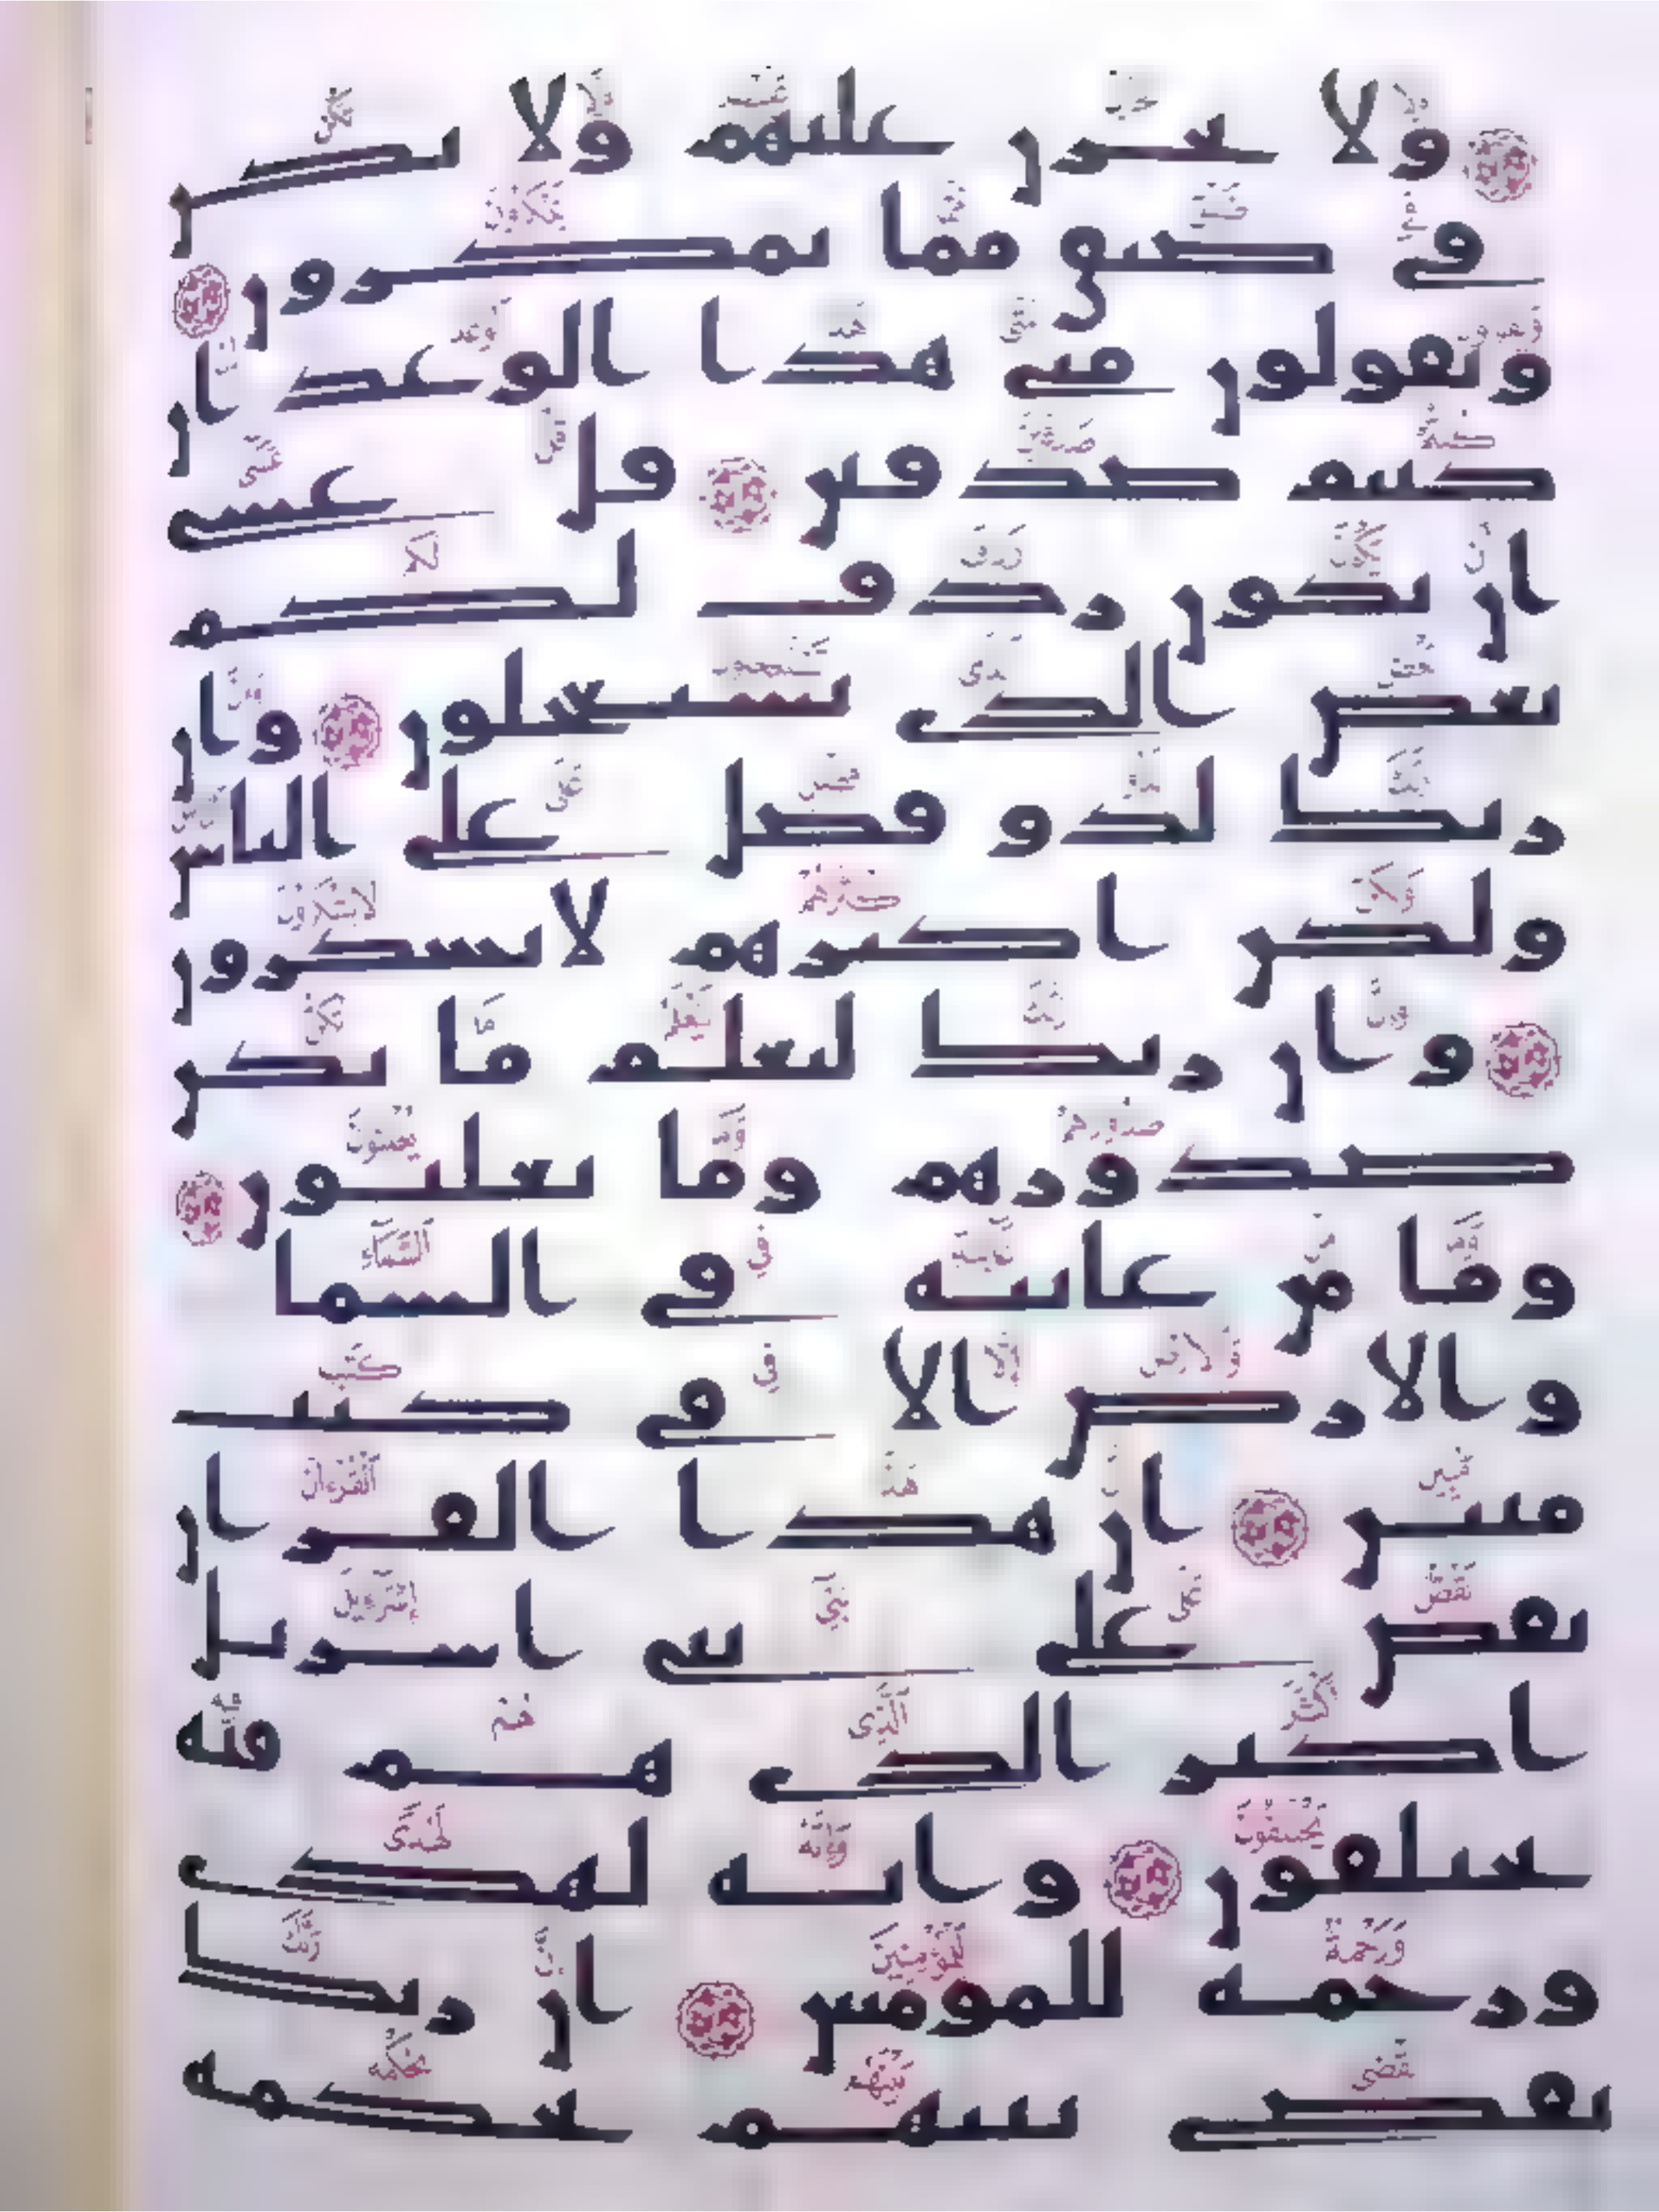 ولا تحزن عليهم ولا تكن
في ضيق مما يمكرون
ويقولون متى هذا الوعد ان
كنتم صدقين قل عسى
ان يكون ردف لكم
بعض الذي تستعجلون وان
ربك لذو فضل على الناس
ولكن اكثرهم لا يشكرون
وان ربك ليعلم ما تكن
صدورهم وما يعلنون
وما من غائبة في السما
والارض الا في كتب
مبين ان هذا القران
يقص على بني اسريل
اكثر الذي هم فيه
يختلفون وانه لهدى
ورحمة للمومنين ان ربك
يقضي بينهم بحكمه